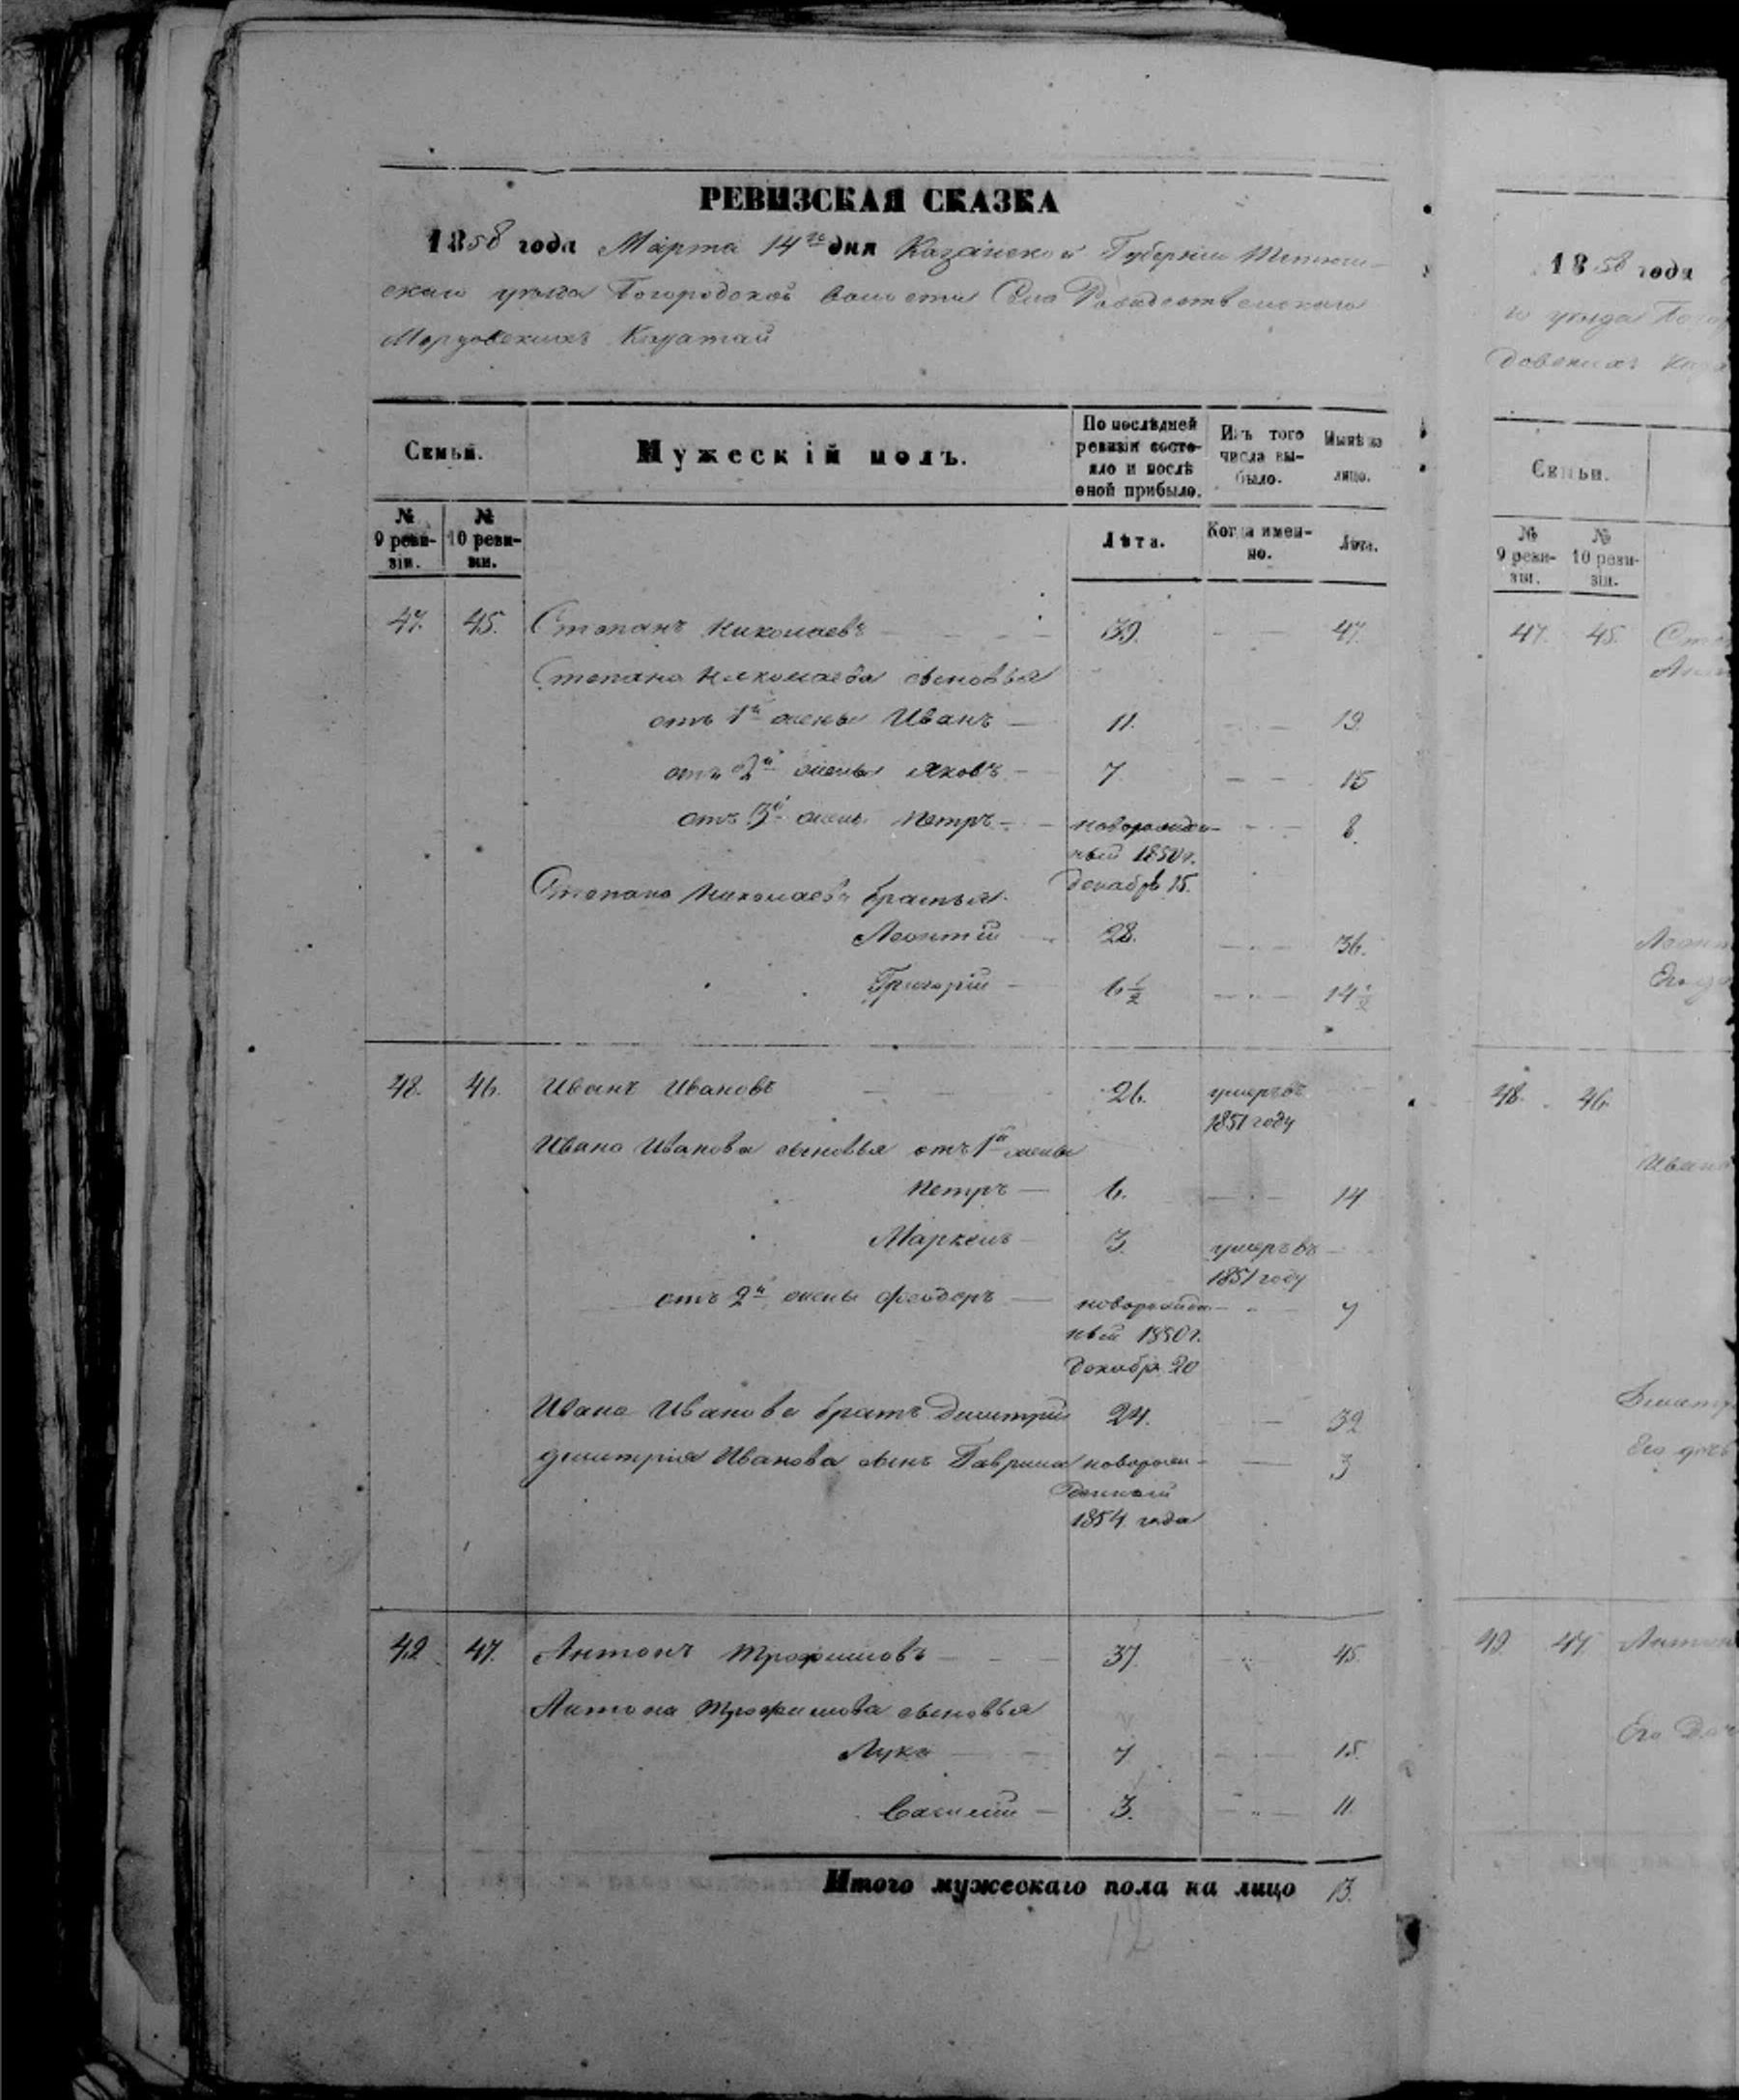 РЕВИЗСКАЯ СКАЗКА
1858 года Марта 14го дня Казанской Губерніи Тетюш-
скаго уѣзда Богородской Волости Села Рождественскаго
Мордовскихъ Каратай
Семьи.
Мужескій полъ.
По послѣдней ревизіи состо-яло и послѣ оной прибыло.
Изъ того числа вы-было.
Нынѣ на лицо.
№ 9 реви-зіи.
№ 10 реви-зіи.
Лѣта.
Когда имен-но.
Лѣта.
47. 45. Степанъ Николаевъ 39. 47.
Степана Николаева сыновья
отъ 1й жены Иванъ 11. 19.
отъ 2й жены Яковъ 7 15
отъ 3й жены Петръ новорожден-ный 1850 г. декабря 15. 8.
Степана Николаева братья
Леонтій 28. 36.
Григорій 6 1/2 14 1/2
48. 46. Иванъ Ивановъ 26. умеръ въ 1851 году
Ивана Иванова сыновья отъ 1й жены
Петръ 6. 14
Маркелъ 3. умеръ въ 1851 году
отъ 2й жены Феодоръ новорожден-ный 1850 г. декабря 20 7
Ивана Иванова братъ Димитрій 24. 32
Димитрія Иванова сынъ Гаврила новорож-денный 1854 года 3
49 47. Антонъ Трофимовъ 37. 45.
Антона Трофимова сыновья
Лука 7. 15.
Василій 3. 11.
Итого мужескаго пола на лицо 13.
12
1858 года
го уѣзда
довскихъ
Семьи.
№ 9 реви-зіи.
№ 10 реви-зіи.
47. 45.
48. 46.
Его дочь
49. 47.
Его